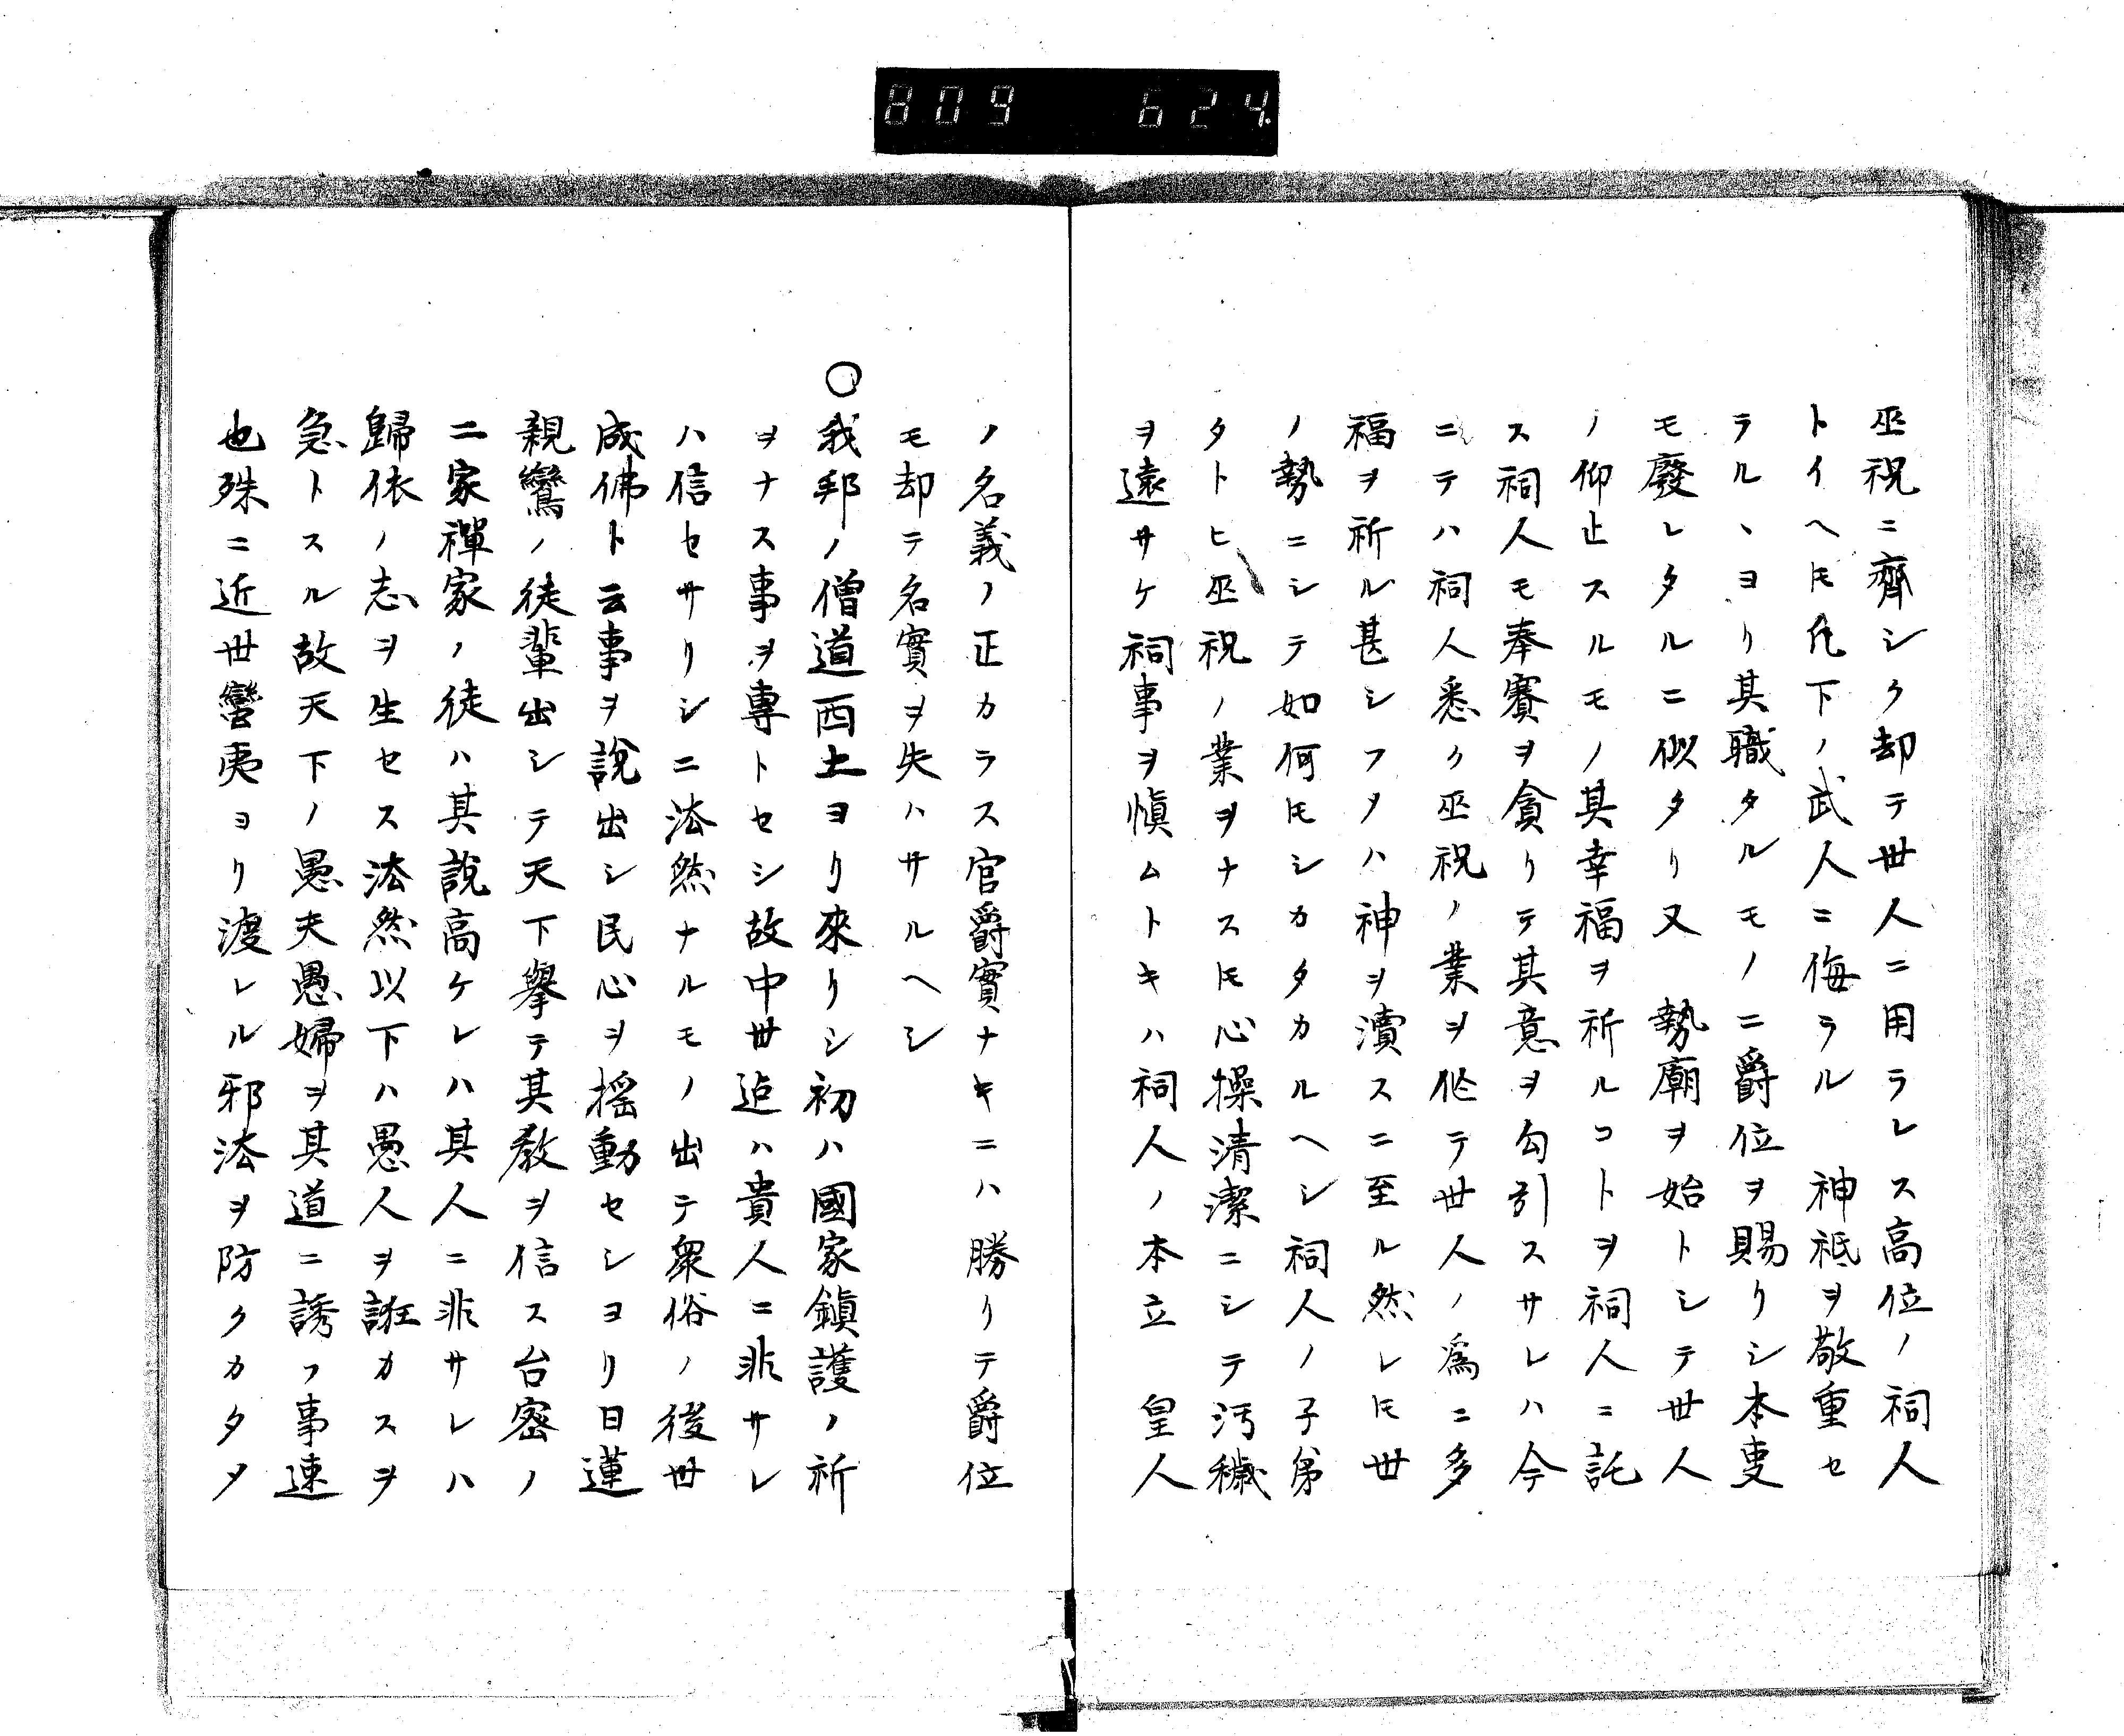 809 624.
巫祝ニ齊シク却テ世人ニ用ラレス高位ノ祠人
トイヘ𪜈凡下ノ武人ニ侮ラル　神祇ヲ敬重セ
ラル丶ヨリ其職タルモノニ爵位ヲ賜リシ本叓
モ廢レタルニ似タリ又　勢廟ヲ始トシテ世人
ノ仰止スルモノ其幸福ヲ祈ルコトヲ祠人ニ託
ス祠人モ奉賽ヲ貪リテ其意ヲ勾引スサレハ今
ニテハ祠人悉ク巫祝ノ業ヲ作テ世人ノ爲ニ多
福ヲ祈ル甚シフタハ神ヲ瀆スニ至ル然レ𪜈世
ノ勢ニシテ如何𪜈シカタカルヘシ祠人ノ子弟
タトヒ巫祝ノ業ヲナス𪜈心操清潔ニシテ汚穢
ヲ遠サケ祠事ヲ愼ムトキハ祠人ノ本立　皇人
ノ名義ノ正カラス官爵實ナキニハ勝リテ爵位
モ却テ名實ヲ失ハサルヘシ
○我邦ノ僧道西土ヨリ來リシ初ハ國家鎭護ノ祈
ヲナス事ヲ專トセシ故中世迠ハ貴人ニ非サレ
ハ信セサリシニ法然ナルモノ出テ衆俗ノ後世
成佛ト云事ヲ說出シ民心ヲ搖動セシヨリ日蓮
親鸞ノ徒輩出シテ天下擧テ其教ヲ信ス台密ノ
二家禪家ノ徒ハ其說高ケレハ其人ニ非サレハ
歸依ノ志ヲ生セス法然以下ハ愚人ヲ誑カスヲ
急トスル故天下ノ愚夫愚婦ヲ其道ニ誘フ事速
也殊ニ近世蠻夷ヨリ渡レル邪法ヲ防クカタタ